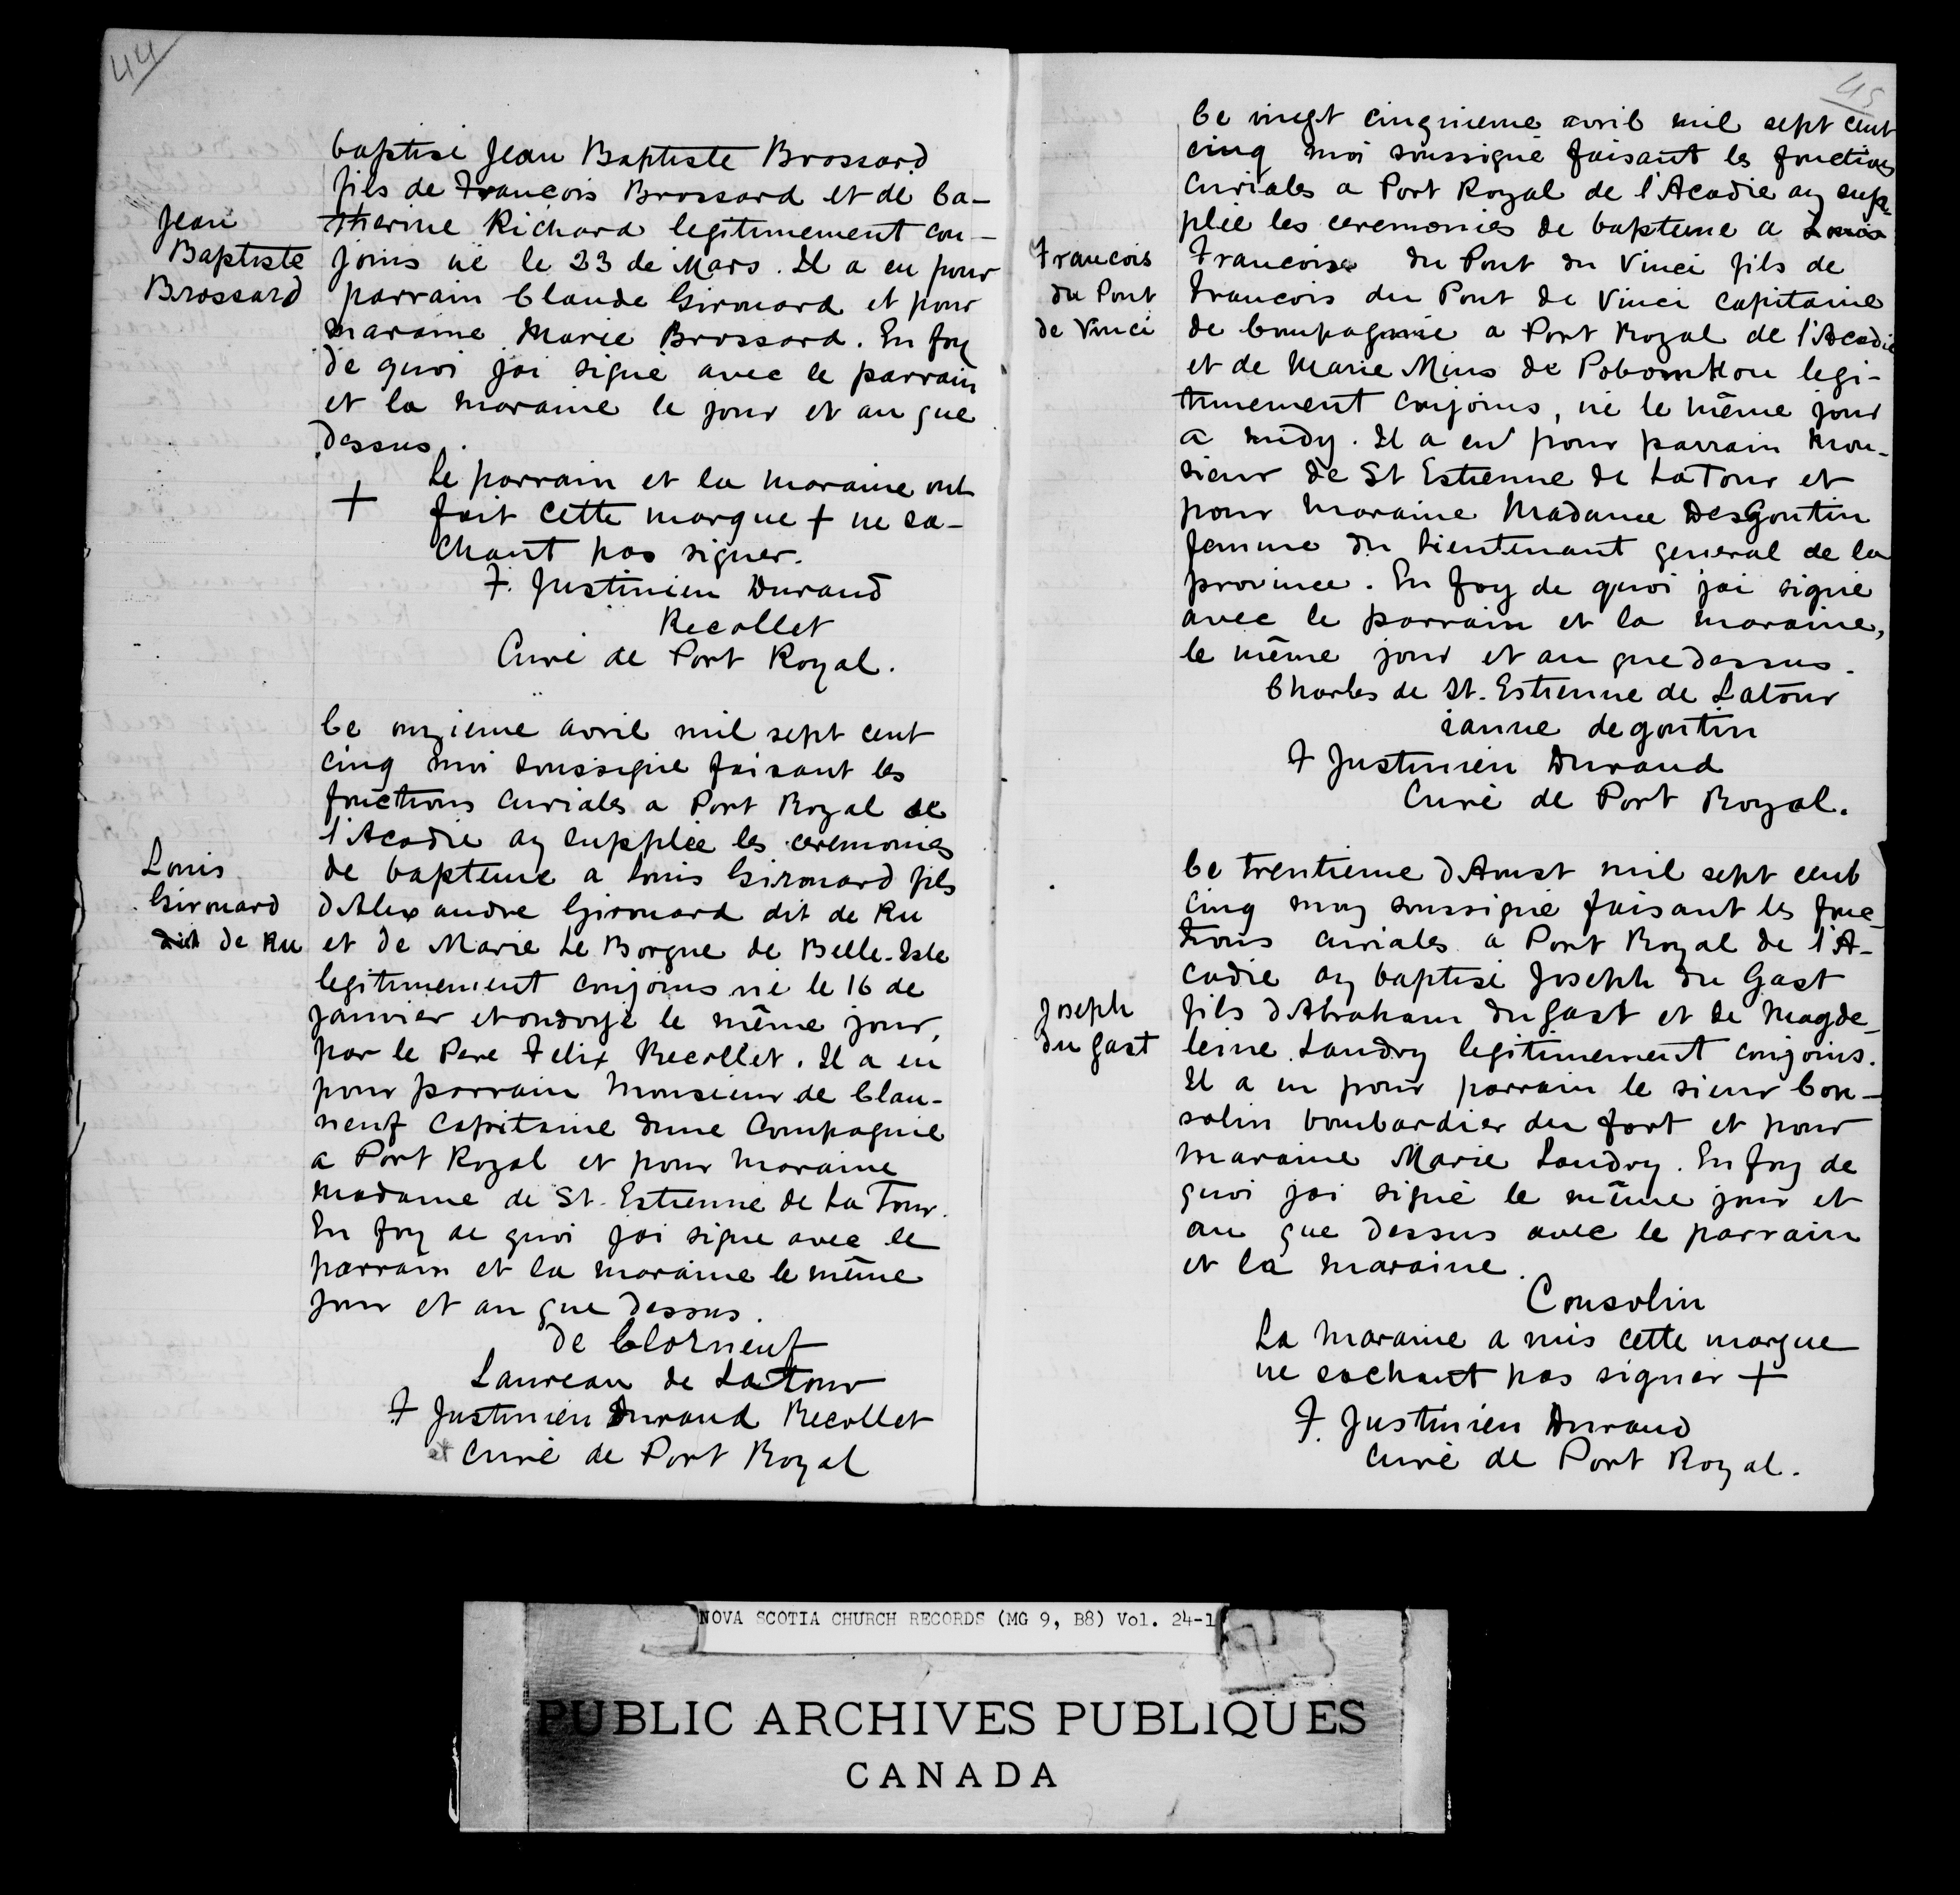 44
baptisé Jean Baptiste Brossard
fils de Francois Brossard et de Ca-
therine Richard legitimement con-
Jean
Baptiste
Brossard
joins né le 23 de Mars. Il a eu pour
parrain Claude Girouard et pour
maraine Marie Brossard. En foy
de quoi jai signé avec le parrain
et la maraine le jour et an que
dessus.
Le parrain et la maraine ont
+ fait cette marque + ne sa-
chant pas signer.
F. Justinien Durand
Recollet
Curé de Port Royal.
Ce onzieme avril mil sept cent
cinq moi soussigné faisant les
fonctions curiales a Port Royal de
l'Acadie ay supplée les ceremonies
Louis
Girouard
dit de Ru
de bapteme a Louis Girouard fils
dAlexandre Girouard dit de Ru
et de Marie Le Borgne de Belle-Isle
legitimement conjoins né le 16 de
janvier et ondoyé le même jour,
par le Pere Felix Recollet. Il a eu
pour parrain Monsieur de Clau-
neuf Capitaine dune Compagnie
a Port Royal et pour maraine
madame de St. Estienne de La Tour.
En foy de quoi jai signe avec le
parrain et la maraine le même
jour et an que dessus.
de Clorneuf
Laureau de La Tour
F Justinien Durand Recollet
et curé de Port Royal
45
Ce vingt cinquieme avril mil sept cent
cinq moi soussigné faisant les fonctions
curiales a Port Royal de l'Acadie ay sup-
plée les ceremonies de bapteme a Louis
Francois
du Pont
de Vinci
Francois du Pont du Vinci fils de
Francois du Pont de Vinci capitaine
de Compagnie a Port Royal de l'Acadie
et de Marie Mius de Pobomkou legi-
timement conjoins, né le même jour
a midy. Il a eu pour parrain Mon-
sieur de St Estienne de LaTour et
pour maraine Madame DesGoutin
femme du Lieutenant general de la
province. En foy de quoi jai signé
avec le parrain et la maraine,
le même jour et an que dessus.
Charles de St. Estienne de Latour
ianne degoutin
F Justinien Durand
Curé de Port Royal.
Ce trentieme dAoust mil sept cent
cinq moy soussigné faisant les fonc-
tions curiales a Port Royal de l'A-
cadie ay baptisé Joseph du Gast
Joseph
du gast
fils dAbraham du gast et de Magde-
leine Landry legitimement conjoins.
Il a eu pour parrain le sieur Con-
solin bombardier du fort et pour
maraine Marie Landry. En foy de
quoi jai signé le même jour et
an que dessus avec le parrain
et la maraine.
Consolin
La maraine a mis cette marque
ne sachant pas signer +
F. Justinien Durand
curé de Port Royal.
NOVA SCOTIA CHURCH RECORDS (MG 9, B8) Vol. 24-1
PUBLIC ARCHIVES PUBLIQUES
CANADA